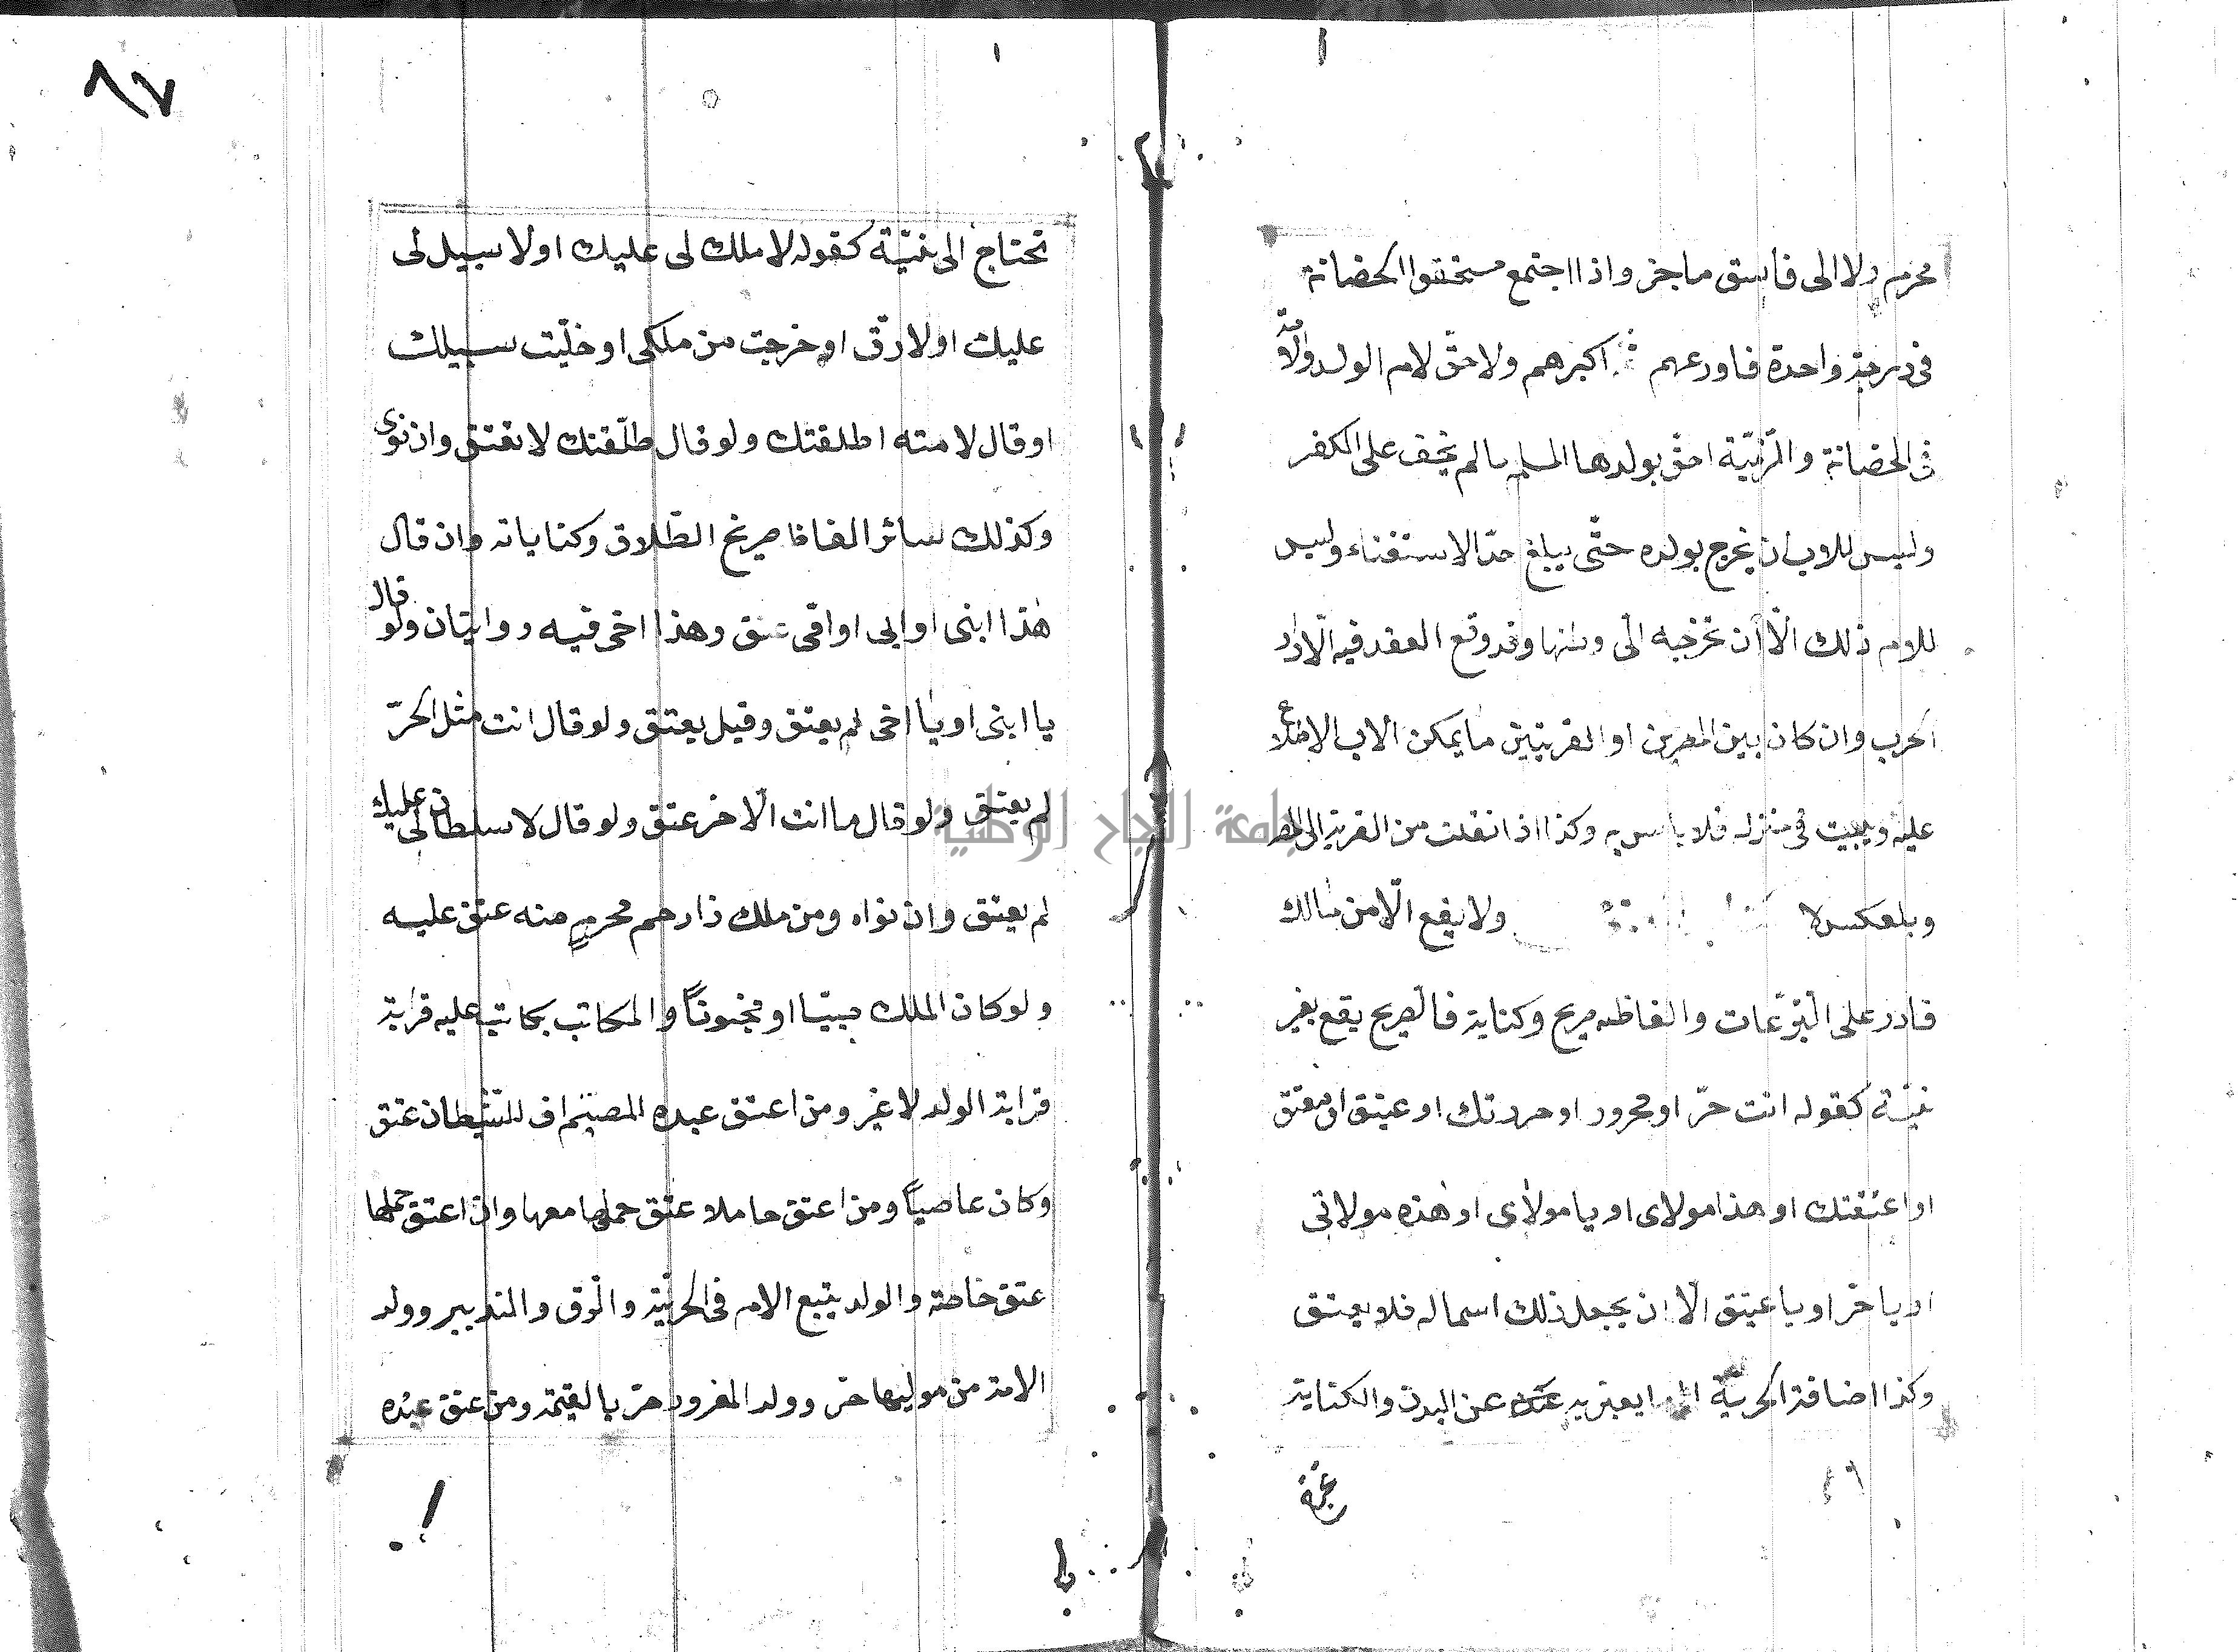 محرم ولا الى فاسق ماجن واذا اجتمع مستحقوا الحضانة
فى درجة واحدة فاورعهم ثم اكبرهم ولا حق لامة الولد والامة
فى الحضانة والذميّة احقّ بولدها المسلم مالم يخف على الكفر
وليس للاب ان يخرج بولده حتّى يبلغ حدّ الاستغناء وليس
للام ذلك الّا أن تخرجه الى وطنها وقد وقع العقد فيه الّا دار
الحرب وان كان بين المصرين او القريتين ما يمكن الاب الاطلاع
عليه ويبيت فى منزله فلا بأس به وكذا اذا نقلت من القرية الى المصر
وبلعكس لا ولا يقع الّا من مالك
قادر على التبرّعات والفاظه صريح وكناية فالصريح يقع بغير
نيّة كقوله انت حرّ او محرور او حررتك او عتيق او معتق
او اعتقتك او هذا مولاى او يا مولاى او هذه مولاتى
او يا حر او يا عتيق الّا ان يجعل ذلك اسما له فلا يعتق
وكذا اضافة الحرية الى ما يعبّر به عن البدن والكناية
٦٧
تحتاج الى نيّة كقوله لا ملك لى عليك او لا سبيل لى
عليك او لا رقّ او خرجت من ملكى او خلّيت سبيلك
او قال لامته اطلقتك ولو قال طلّقتك لا تعتق وان نوى
وكذلك سائر الفاظ صريح الطّلاق وكناياته وان قال
هذا ابنى او ابى او امّى عتق وهذا اخى فيه روايتان ولو قال
يا ابنى او يا اخى لم يعتق وقيل يعتق ولو قال انت مثل الحرّ
لم يعتق ولو قال ما انت الّا حر عتق ولو قال لا سلطان لى عليك
لم يعتق وان نواه ومن ملك ذا رحم محرم منه عتق عليه
ولو كان الملك صبيّا او مجنوناً والمكاتب يكاتب عليه قرابة
قرابة الولد لا غير ومن اعتق عبده للصنم او للشيطان عتق
وكان عاصياً ومن اعتق حاملا عتق حملها معها وان اعتق حملها
عتق خاصة والولد يتبع الام فى الحريّة والرّق والتدبير وولد
الامة من موليها حر وولد المغرور حرّ بالقيمة ومن عتق عبده
جامعة النجاح الوطنية